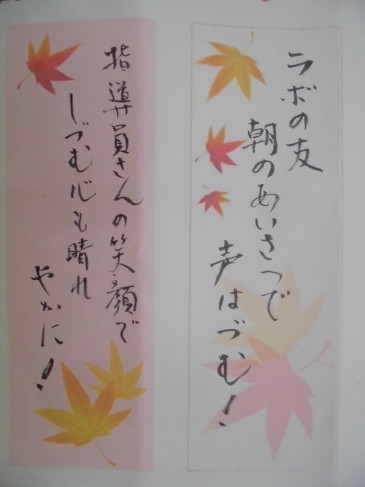 ラボの友
朝のあいさつで
声はづむ!
指導員さんの笑顔で
しづむ心も晴れ
やかに!